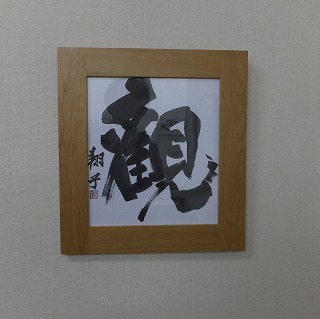 観
翔子